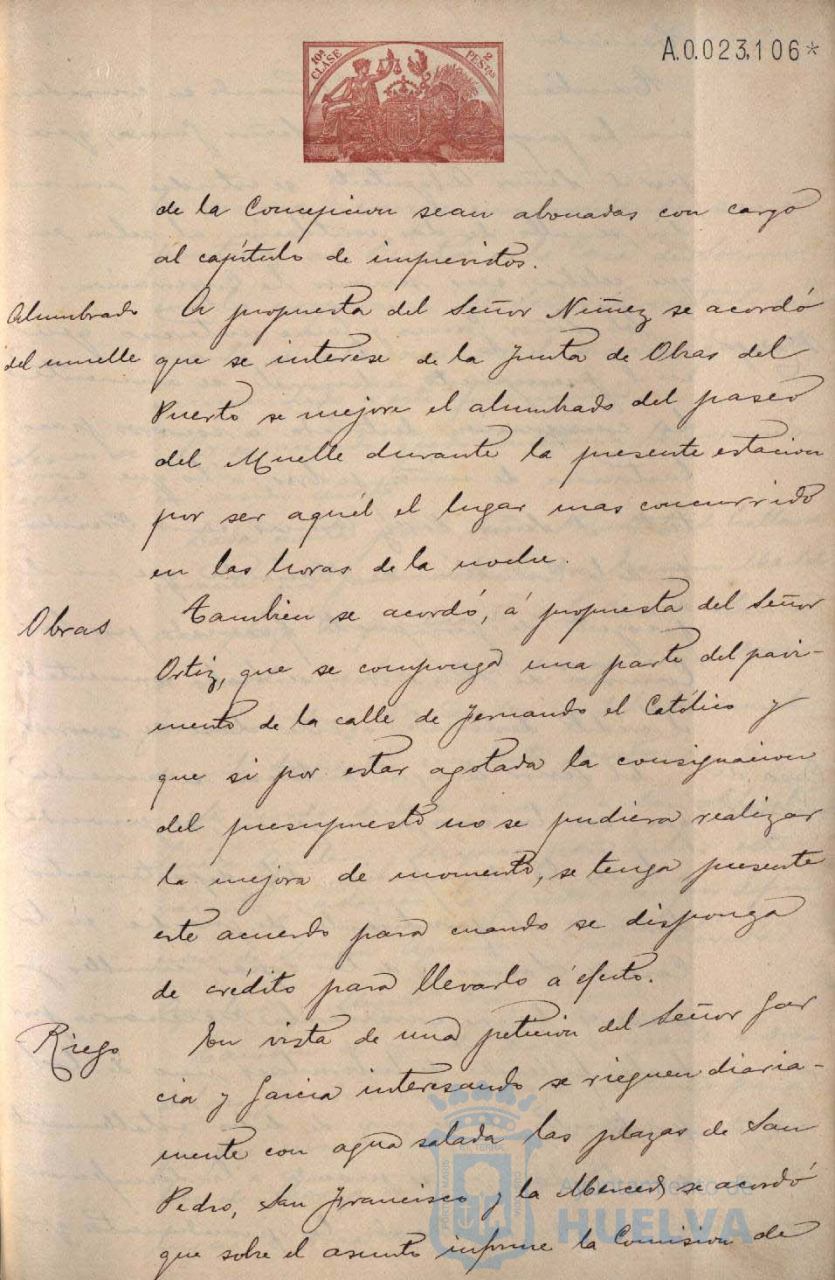 10ª CLASE
2 PESTAS
A.0.023,106*
de la Concepcion sean abonadas con cargo
al capítulo de imprevistos.
Alumbrado
del muelle
A propuesta del Señor Nuñez se acordó
que se interese de la Junta de Obras del
Puerto se mejore el alumbrado del paseo
del Muelle durante la presente estacion
por ser aquél el lugar mas concurrido
en las horas de la noche.
Obras
Tambien se acordó, á propuesta del Señor
Ortiz, que se componga una parte del pavi-
mento de la calle de Fernando el Católico y
que si por estar agotada la consignacion
del presupuesto no se pudiera realizar
la mejora de momento, se tenga presente
este acuerdo para cuando se disponga
de crédito para llevarlo á efecto.
Riego
En vista de una peticion del Señor Gar
cia y Garcia interesando se rieguen diaria-
mente con agua salada las plazas de San
Pedro, San Francisco y la Merced, se acordó
que sobre el asunto informe la Comision de
Ayuntamiento de
HUELVA